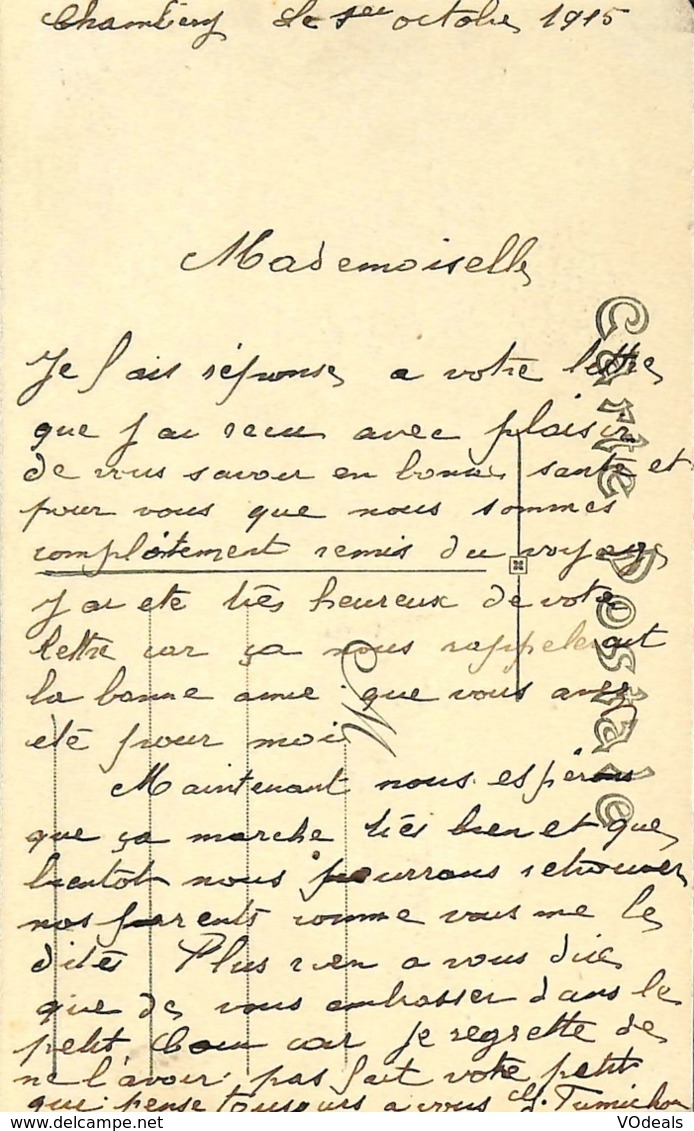 Chambéry le 1er octobre 1915
Mademoiselle
Je fais réponse a votre lettre
que j'ai recu avec plaisir
de vous savoir en bonne santé et
pour vous que nous sommes
complètement remis du voyage
J'ai eté très heureux de votre
lettre car ça nous rappelerait
la bonne amie que vous avez
eté pour moi
Maintenant nous espérons
que ça marche très bien et que
bientot nous pourrons retrouver
nos parents comme vous me le
dites Plus rien a vous dire
que de vous embrasser dans le
petit cou car je regrette de
ne l'avoir pas fait votre petit
qui pense toujours a vous
Carte Postale
www.delcampe.net
VOdeals